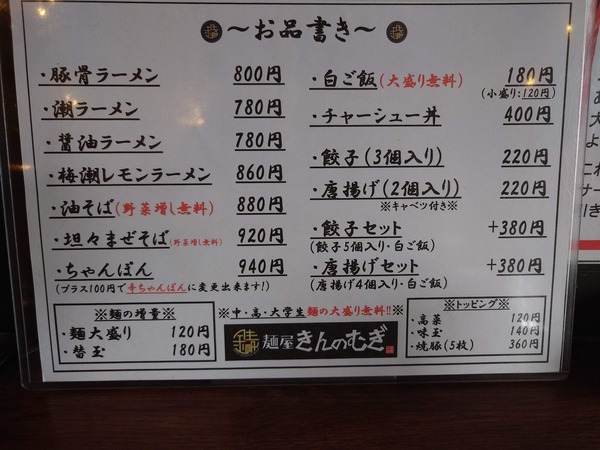 ～お品書き～
・豚骨ラーメン 800円
・潮ラーメン 780円
・醤油ラーメン 780円
・梅潮レモンラーメン 860円
・油そば(野菜増し無料) 880円
・坦々まぜそば(野菜増し無料) 920円
・ちゃんぽん 940円
(プラス100円で辛ちゃんぽんに変更出来ます!)
・白ご飯(大盛り無料) 180円
(小盛り:120円)
・チャーシュー丼 400円
・餃子(3個入り) 220円
・唐揚げ(2個入り) 220円
※キャベツ付き※
・餃子セット +380円
(餃子5個入り・白ご飯)
・唐揚げセット +380円
(唐揚げ4個入り・白ご飯)
※麺の増量※
・麺大盛り 120円
・替玉 180円
※中・高・大学生麺の大盛り無料!!※
麺屋 きんのむぎ
※トッピング※
・高菜 120円
・味玉 140円
・焼豚(5枚) 360円